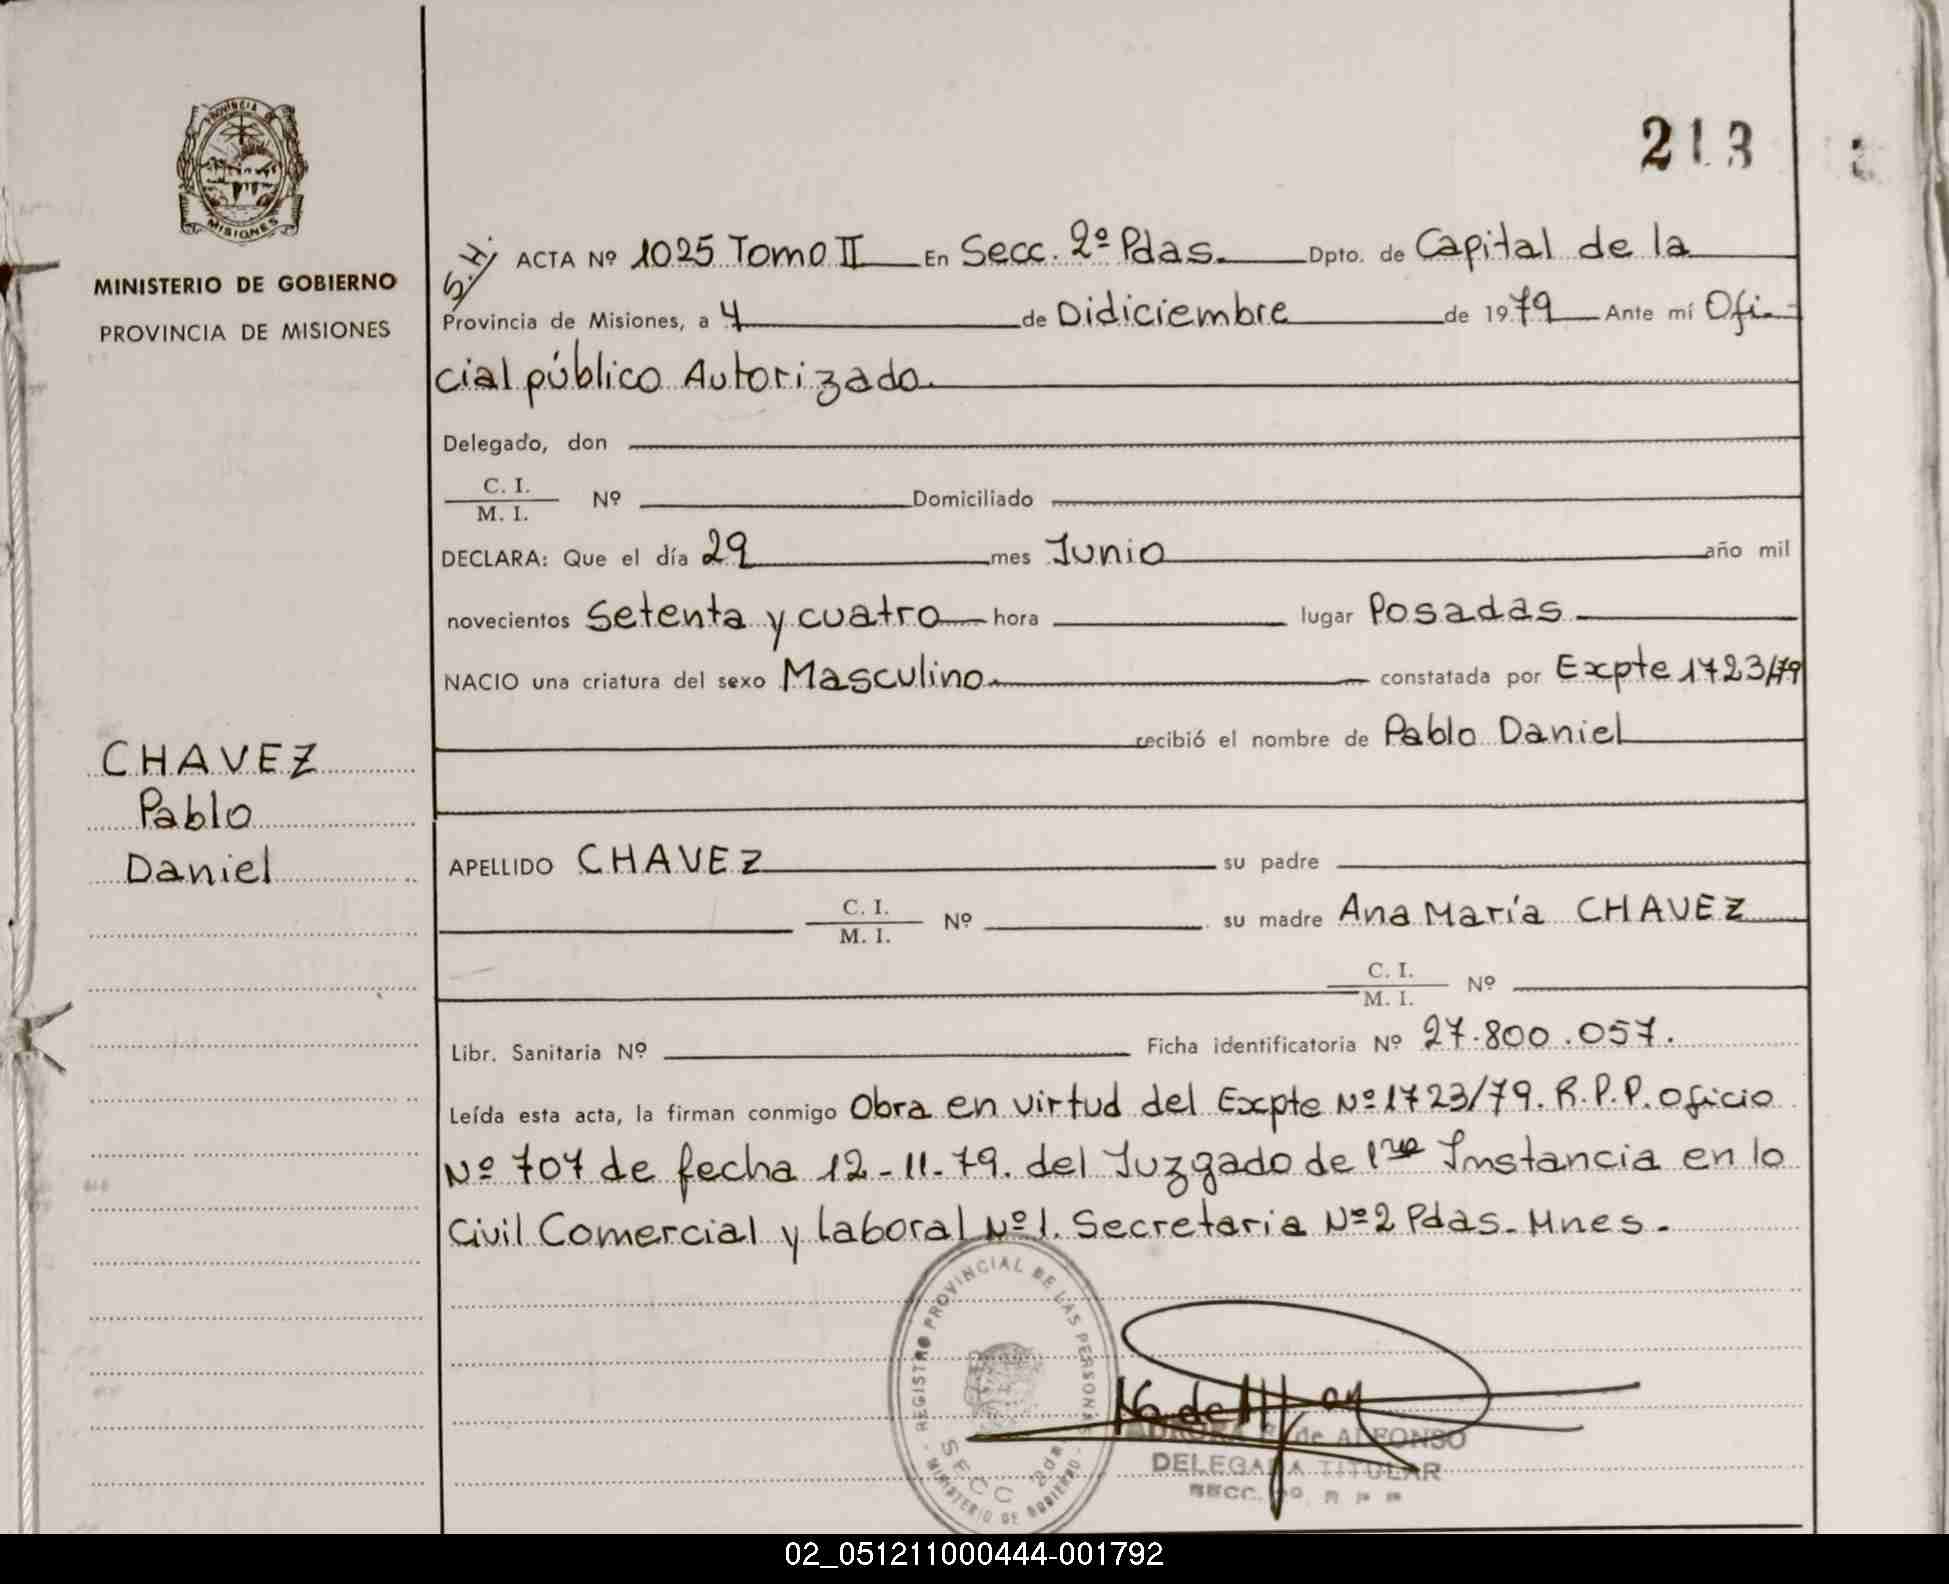 213
PROVINCIA DE
MISIONES
MINISTERIO DE GOBIERNO
PROVINCIA DE MISIONES
CHAVEZ
Pablo
Daniel
S.H. ACTA Nº 1025 Tomo II En Secc. 2º Pdas. Dpto. de Capital de la
Provincia de Misiones, a 4 de Didiciembre de 1979 Ante mí Ofi-
cial público Autorizado.
Delegado, don
C. I.
M. I. Nº Domiciliado
DECLARA: Que el día 29 mes Junio año mil
novecientos Setenta y cuatro hora lugar Posadas
NACIO una criatura del sexo Masculino. constatada por Expte 1723/79
recibió el nombre de Pablo Daniel
APELLIDO CHAVEZ su padre
C. I.
M. I. Nº su madre Ana María CHAVEZ
C. I.
M. I. Nº
Libr. Sanitaria Nº Ficha identificatoria Nº 27.800.057.
Leída esta acta, la firman conmigo Obra en virtud del Expte Nº 1723/79. R.P.P. Oficio
Nº 707 de fecha 12-11-79. del Juzgado de 1ra Instancia en lo
Civil Comercial y laboral Nº 1. Secretaria Nº 2 Pdas. Mnes.
REGISTRO PROVINCIAL DE LAS PERSONAS
SECC 2da
MINISTERIO DE GOBIERNO
AURORA R. de ALFONSO
DELEGADA TITULAR
SECC.
02_051211000444-001792